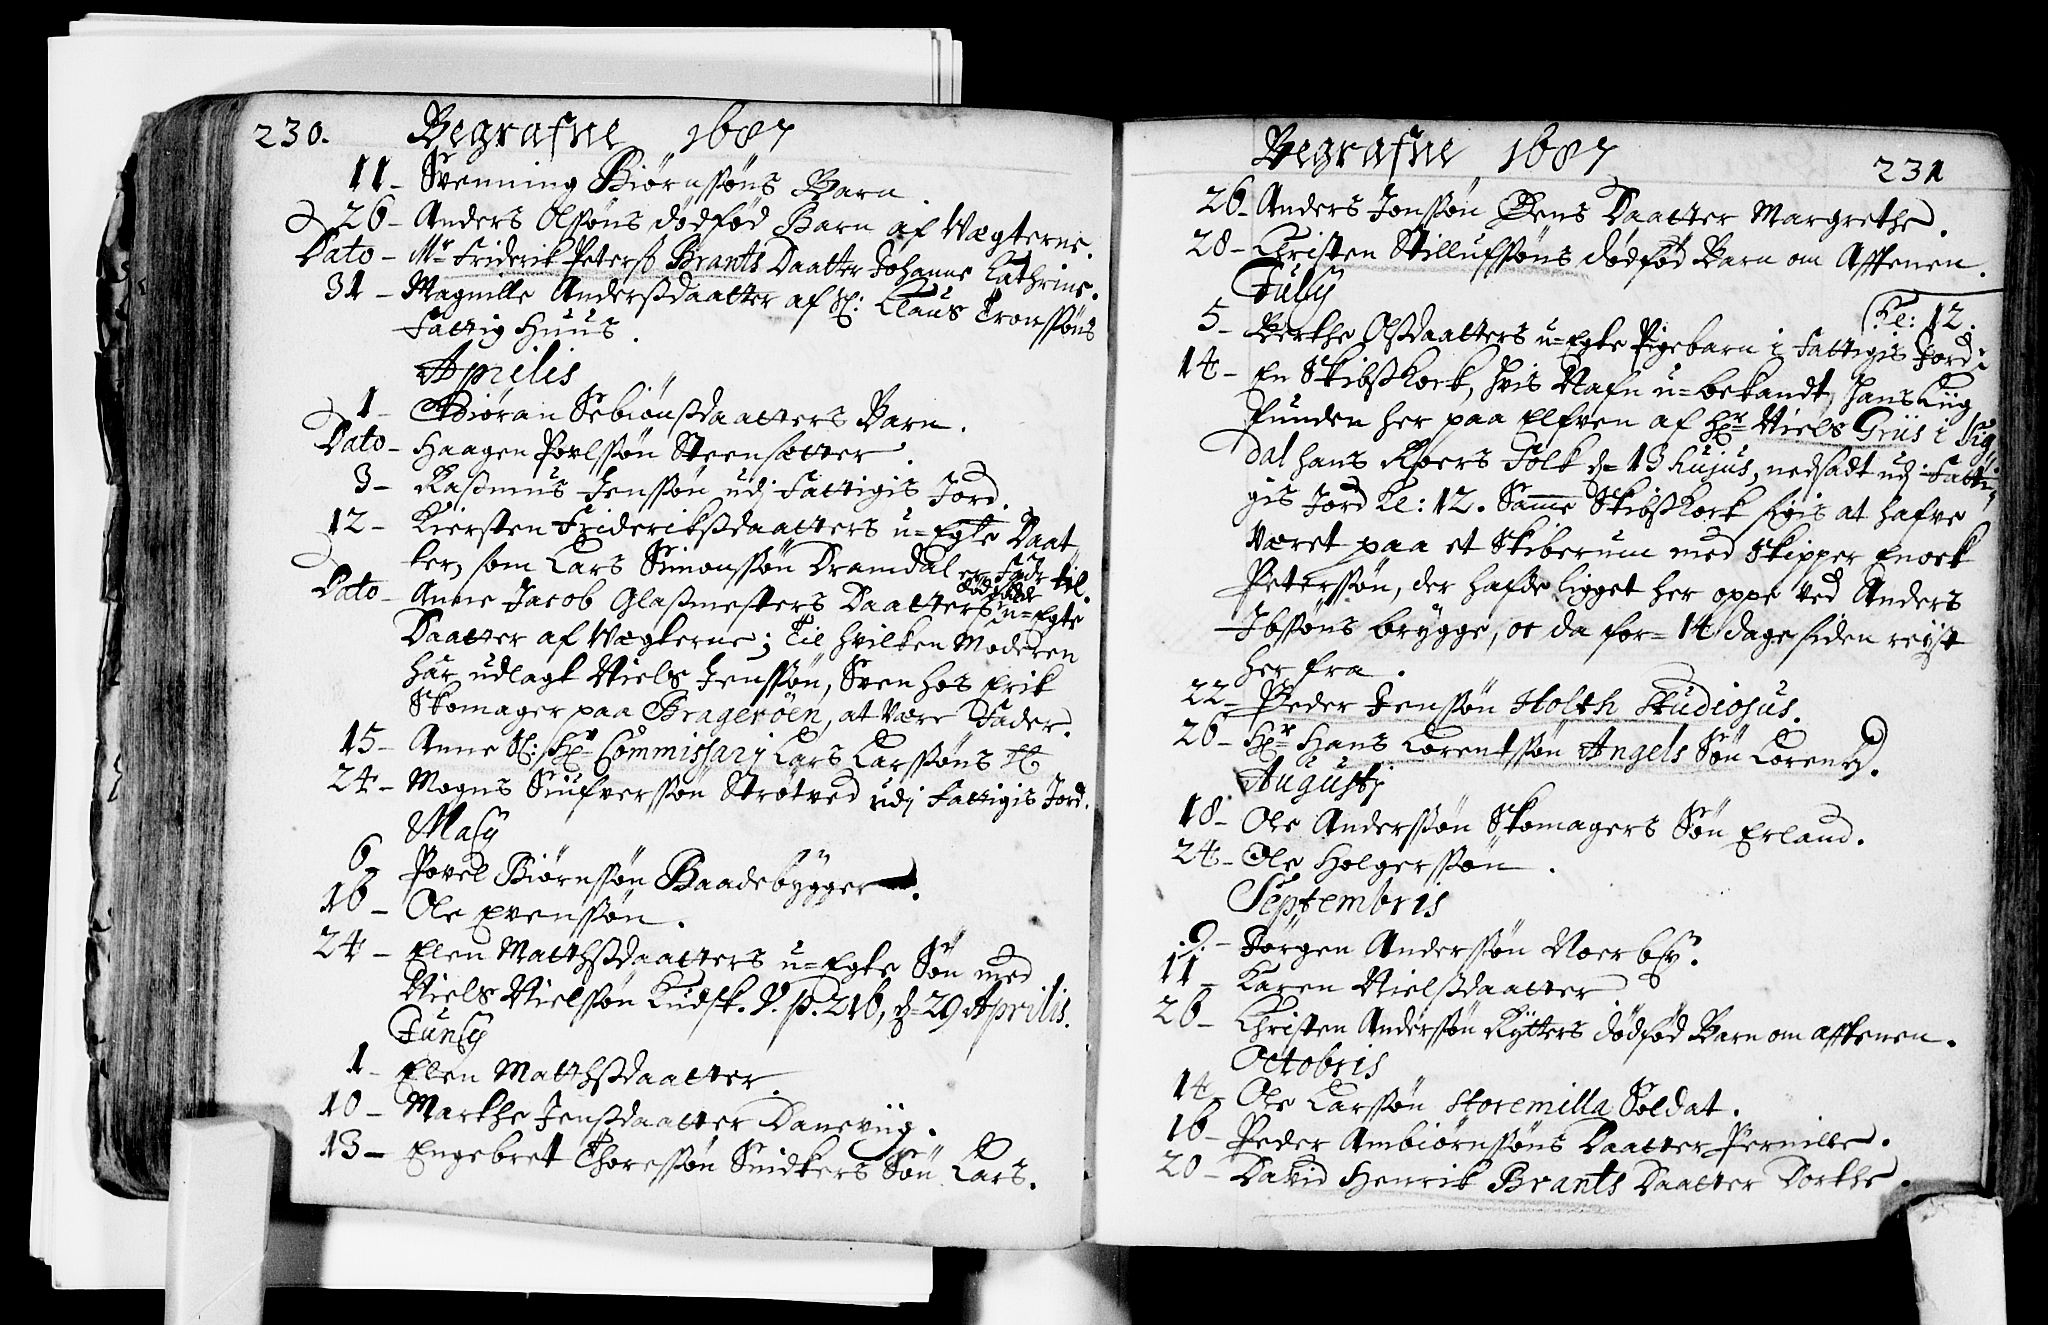 230. Begrafne 1687
11 - Svenning Biørnssöns Barn.
26 - Anders Olssöns dödfød Barn af Vægterne.
Dato - Mr Friderik Peterss Brants Daatter Johanne Cathrine.
31 - Magnille Anderssdaatter af Sl: Claus Tronssöns
Fattig Huus.
Aprilis
1 - Sebiønssdaatters Barn.
Dato - Haagen Povlssön Steensætter.
3 - Rasmus Jenssøn udj Fattigis Jord.
12 - Kiersten Frideriksdaatters u-Egte Daat-
ter, som Lars Simonssön Dramdal er Fadr til.
Dato - Anne Jacob Glassmesters Daatters dödfødde u-Egte
Daatter af Vægterne; Til hvilken Moderen
har udlagt Niels Jenssøn, Sven hos Erik
Skomager paa Bragerøen, at være Fader.
15 - Anne Sl: Hr Commissarj Lars Larssøns
24 - Mogns Siufverssøn Strøtved udj Fattigis Jord.
Maÿ
6 - Povel Biørnssøn Baadebÿgger.
16 - Ole Evenssøn.
24 - Elen Matthssdaatters u-Egte Søn med
Niels Nielssøn Kudsk. V. p. 216, d= 29 Aprilis.
Junÿ
1 - Elen Matthssdaatter.
10 - Marthe Jenssdaatter Daneviig.
13 - Engebret Thoressøn Snidkers Søn Lars.
Begrafne 1687 231
26 - Anders Jonssøn Daatter Margrethe.
28 - Christen Stillufssøns dödfød Barn om Afftenen.
Julÿ
Kl: 12.
5 - Berthe Olssdaatters u-Egte Pigebarn i Fattigis Jord
14 - En Skibsskock, hvis Nafn u-bekandt, hans Liig
funden her paa Elfven af Hr Niels Griis i Sig-
dal hans Roers Folk d= 13 hujus, nedsadt udj Fatti-
gis Jord Kl: 12. Samme Skibsskock sigis at hafve
været paa et Skiberum med Skipper Enock
Peterssøn, der hafde ligget her oppe ved Anders
Ibssöns brygge, oc da for= 14 dage siden reijst
her fra.
22 - Peder Jenssøn Holth Studiosus.
26 - Hr Hans Lorentssøn Angels Søn Lorentz.
Augustj
18 - Ole Anderssøn Skomagers Søn Erland.
24 - Ole Holgerssøn.
Septembris
9 - Jørgen Anderssøn Noerbÿ.
11 - Karen Nielssdaatter
26 - Christen Anderssøn Rÿtters dödfød Barn om afftenen.
Octobris
14 - Ole Larssøn Storemilla Soldat.
16 - Peder Ambiørnssøns Daatter Pernille.
20 - David Henrik Brants Daatter Dorthe.